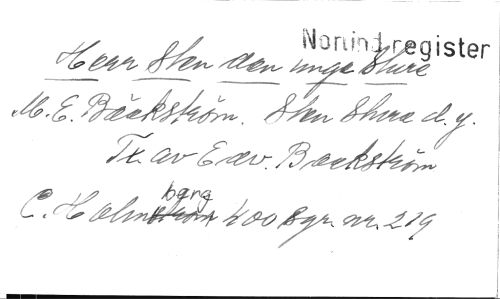 Nominal register
Herr Sten den unge Sture
M. E. Bäckström. Sten Sture d. y.
Tx. av Edv. Backström
berg
C. Holmstrøm 400 Sgr. nr. 219